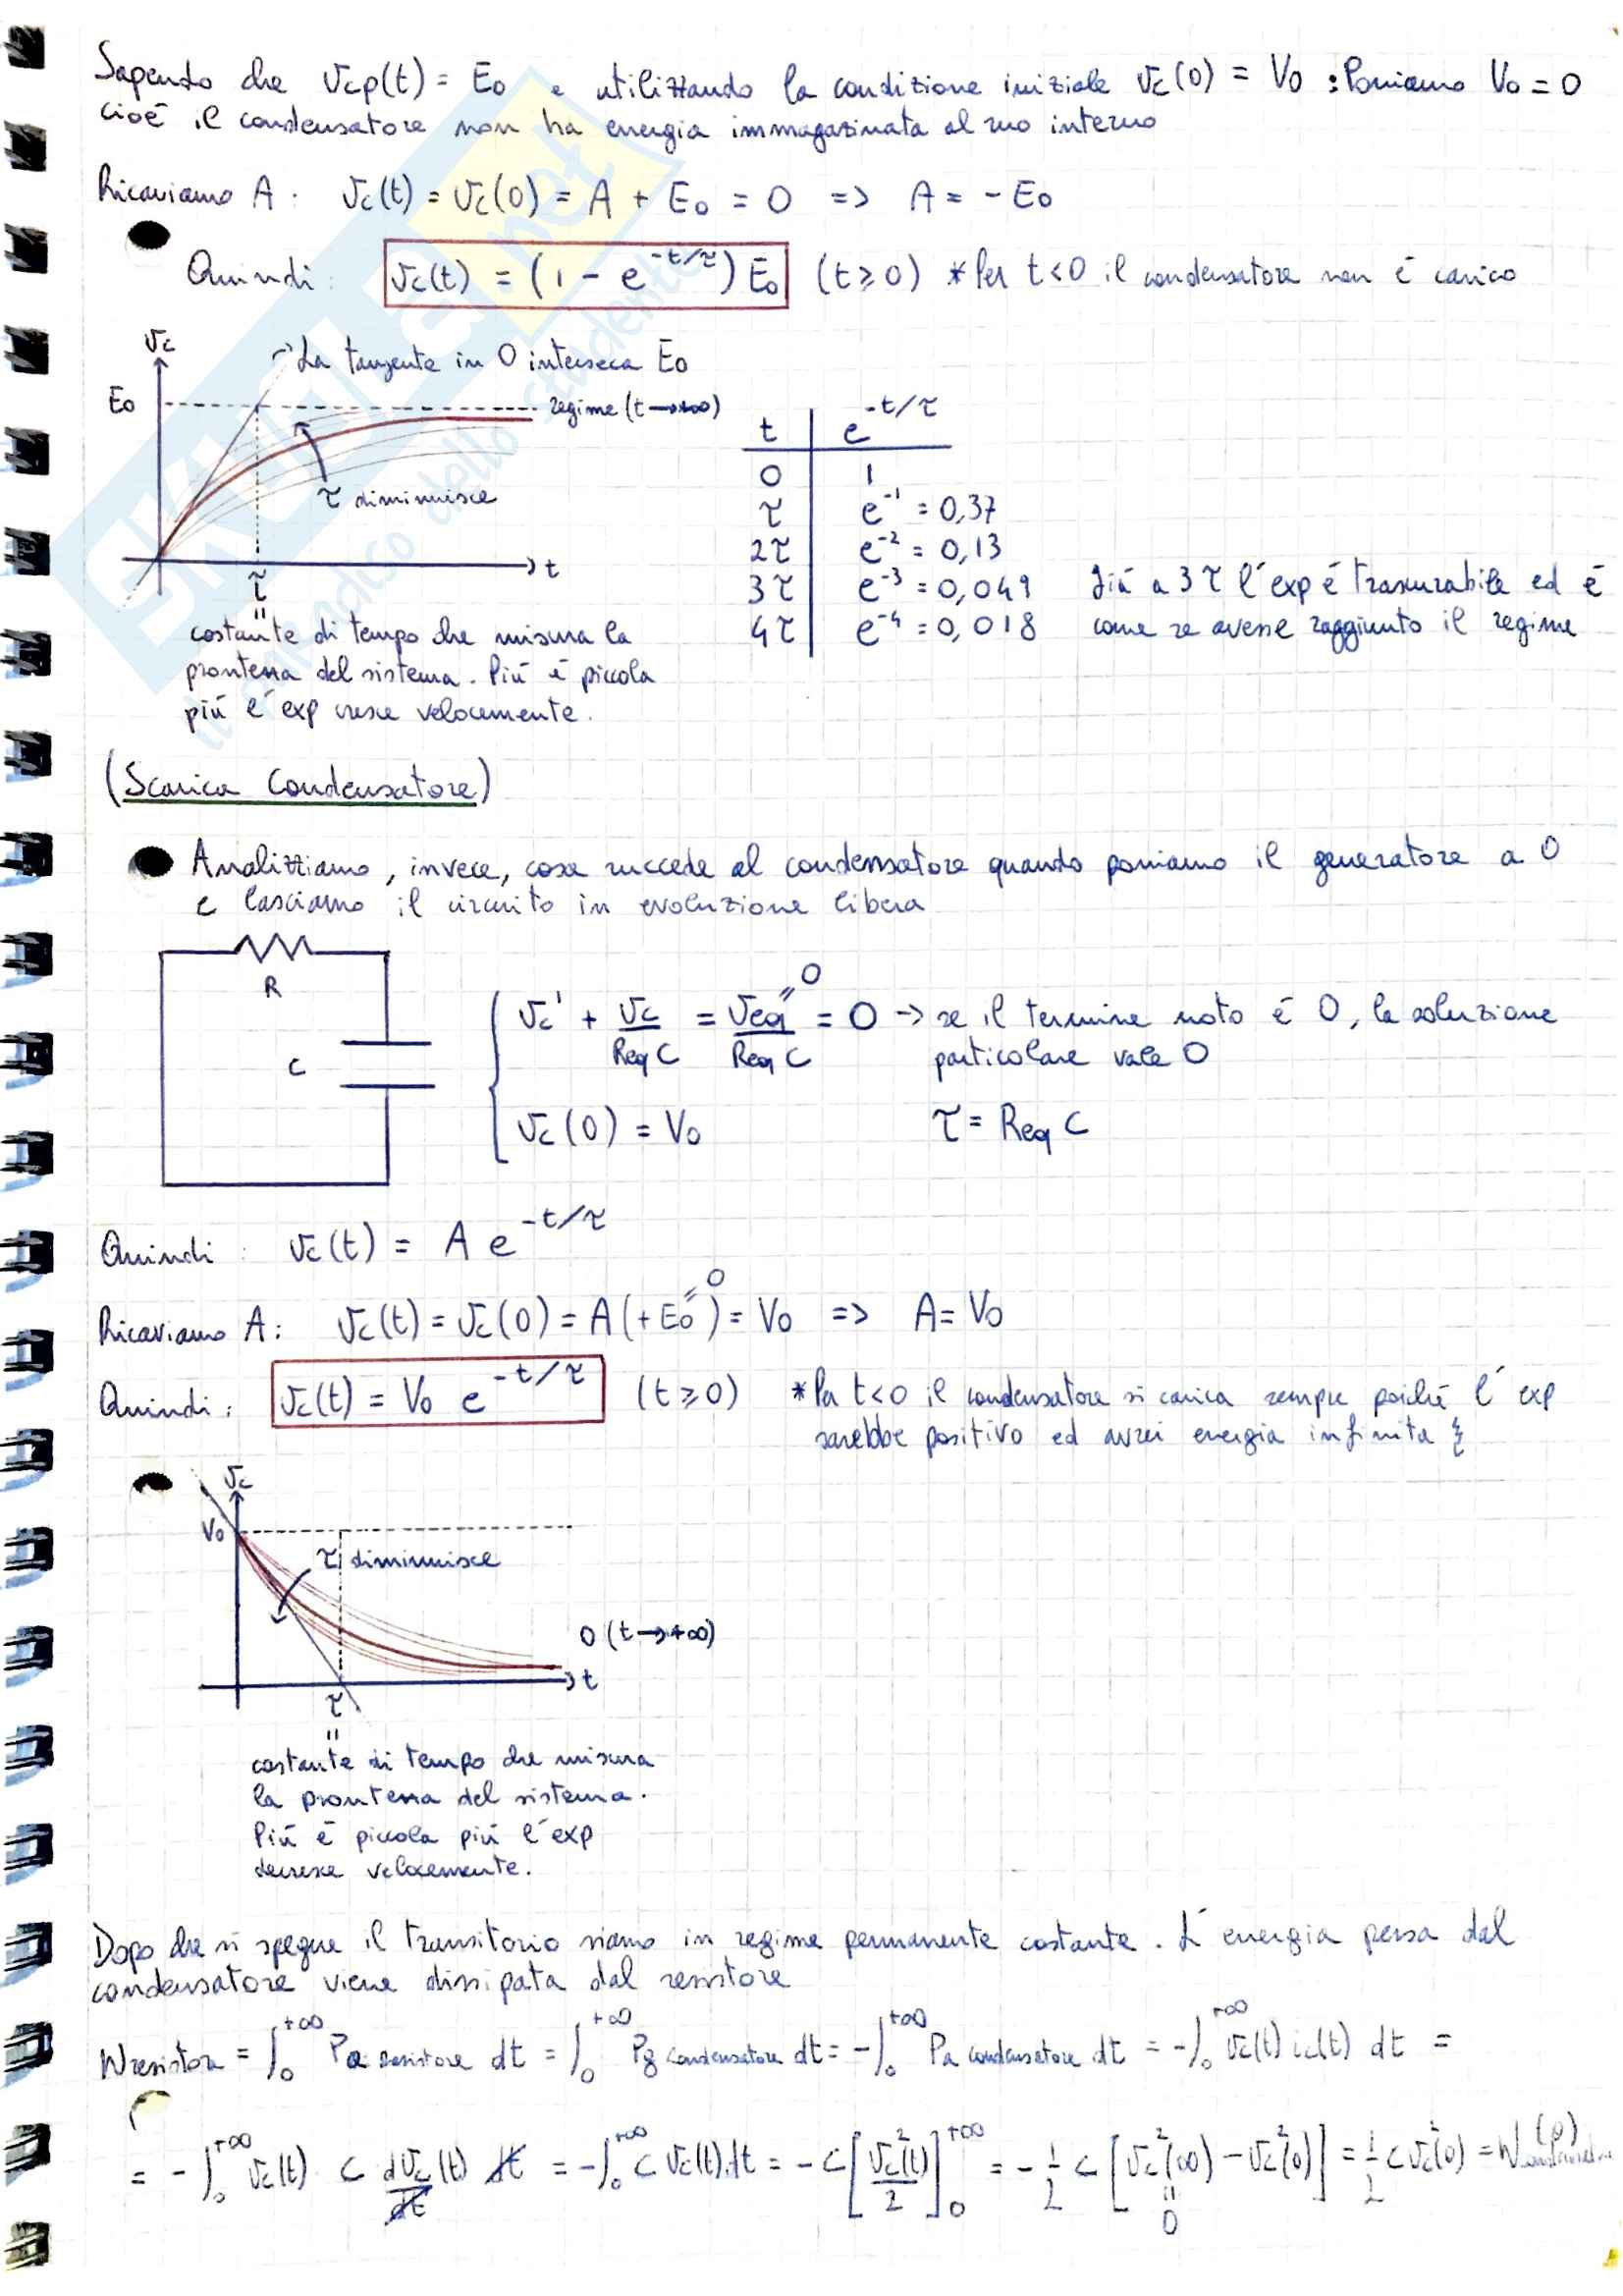 Sapendo che Vcp(t) = E0 e utilizzando la condizione iniziale Vc(0) = V0 : Poniamo V0 = 0
cioè il condensatore non ha energia immagazinata al suo interno
Ricaviamo A : Vc(t) = Vc(0) = A + E0 = 0 => A = - E0
Quindi : Vc(t) = (1 - e^-t/τ) E0 (t ≥ 0) * Per t < 0 il condensatore non è carico
Vc
La tangente in 0 interseca E0
E0
regime (t → +∞)
τ diminuisce
t
τ
=
costante di tempo che misura la
prontezza del sistema. Più è piccola
più l'exp cresce velocemente.
t e^-t/τ
0 1
τ e^-1 = 0,37
2τ e^-2 = 0,13
3τ e^-3 = 0,049
4τ e^-4 = 0,018
Già a 3τ l'exp è trascurabile ed è
come se avesse raggiunto il regime
(Scarica Condensatore)
Analizziamo, invece, cosa succede al condensatore quando poniamo il generatore a 0
e lasciamo il circuito in evoluzione libera
R
C
Vc' + Vc/ReqC = Veq/ReqC = 0 → se il termine noto è 0, la soluzione
0
particolare vale 0
Vc(0) = V0 τ = Req C
Quindi : Vc(t) = A e^-t/τ
Ricaviamo A : Vc(t) = Vc(0) = A (+ E0) = V0 => A = V0
0
Quindi : Vc(t) = V0 e^-t/τ (t ≥ 0) * Per t < 0 il condensatore si carica sempre poiché l'exp
sarebbe positivo ed avrei energia infinita
Vc
V0
τ diminuisce
0 (t → +∞)
t
τ
=
costante di tempo che misura
la prontezza del sistema.
Più è piccola più l'exp
decresce velocemente.
Dopo che si spegne il transitorio siamo in regime permanente costante. L'energia persa dal
condensatore viene dissipata dal resistore
Wresistore = ∫0^+∞ Pa resistore dt = ∫0^+∞ Pg condensatore dt = - ∫0^+∞ Pa condensatore dt = - ∫0^+∞ Vc(t) ic(t) dt =
= - ∫0^+∞ Vc(t) C dVc/dt (t) dt = - ∫0^+∞ C Vc(t) dt = - C [Vc²(t)/2]0^+∞ = - 1/2 C [Vc²(∞) - Vc²(0)] = 1/2 C Vc²(0) = Wcondensatore(0)
=
0
SKUOLA.net
il paradiso dello studente